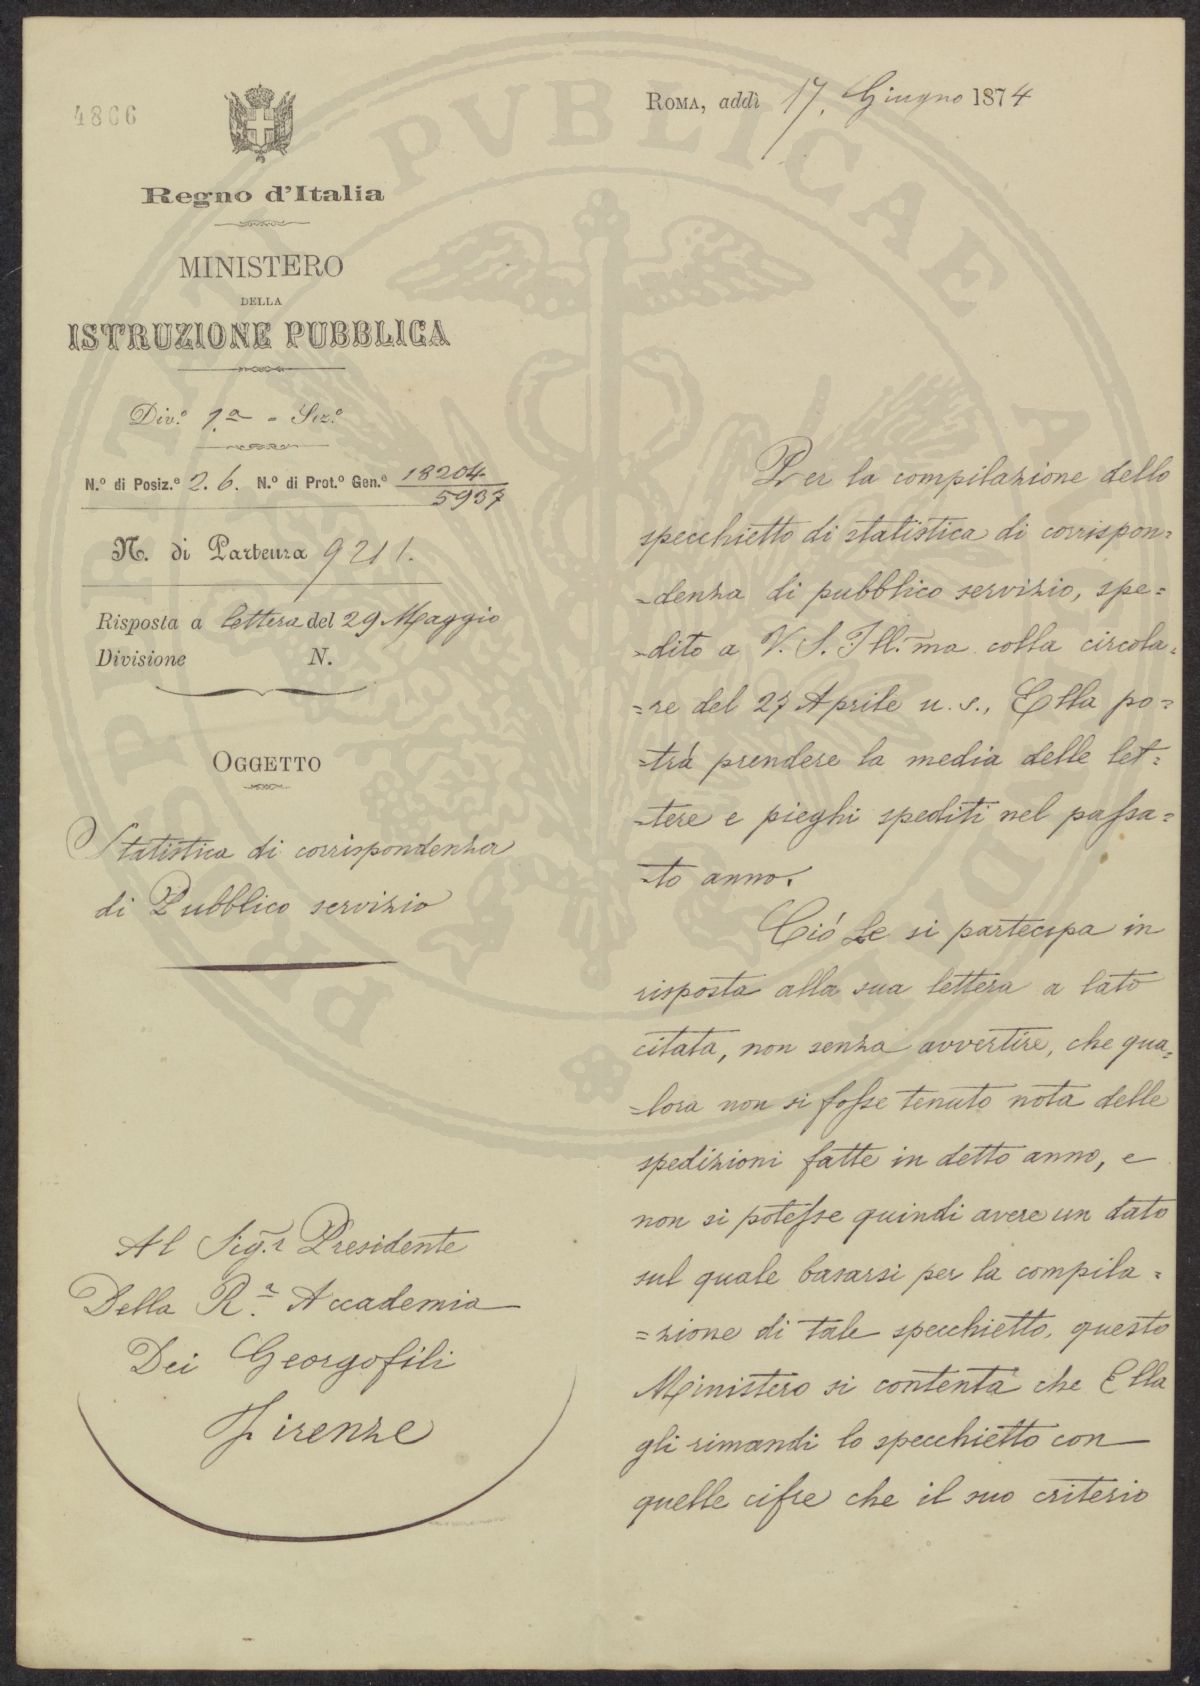 4866
Roma, addì 17. Giugno 1874
Regno d'Italia
MINISTERO
DELLA
ISTRUZIONE PUBBLICA
Div.e 1.a - Sez.e
N.o di Posiz.e 2. 6. N.o di Prot.o Gen.e 18204
5937
N. di Partenza 9211.
Risposta a lettera del 29 Maggio
Divisione N.
OGGETTO
Statistica di corrispondenza
di Pubblico servizio
Al Sig.r Presidente
Della R.a Accademia
Dei Georgofili
Firenze
Per la compilazione dello
specchietto di statistica di corrispon=
=denza di pubblico servizio, spe=
=dito a V. S. Ill.ma colla circola=
=re del 27 Aprile u. s., Ella po=
=trà prendere la media delle let=
=tere e pieghi spediti nel passa=
=to anno.
Ciò Le si partecipa in
risposta alla sua lettera a lato
citata, non senza avvertire, che qua=
=lora non si fosse tenuto nota delle
spedizioni fatte in detto anno, e
non si potesse quindi avere un dato
sul quale basarsi per la compila=
=zione di tale specchietto, questo
Ministero si contenta che Ella
gli rimandi lo specchietto con
quelle cifre che il suo criterio